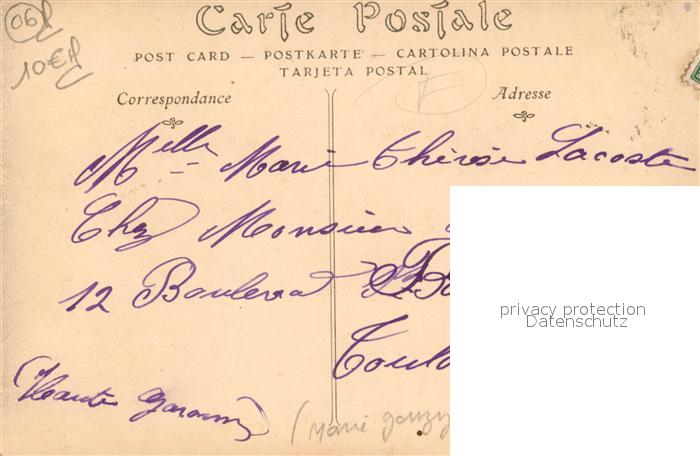 06
10€
Carte Postale
POST CARD — POSTKARTE — CARTOLINA POSTALE
TARJETA POSTAL
Correspondance
Adresse
F
Melle Marie Thérèse Lacoste
Chez Monsieur
12 Boulevard
Toulo
(Haute Garonne)
(Marie
privacy protection
Datenschutz